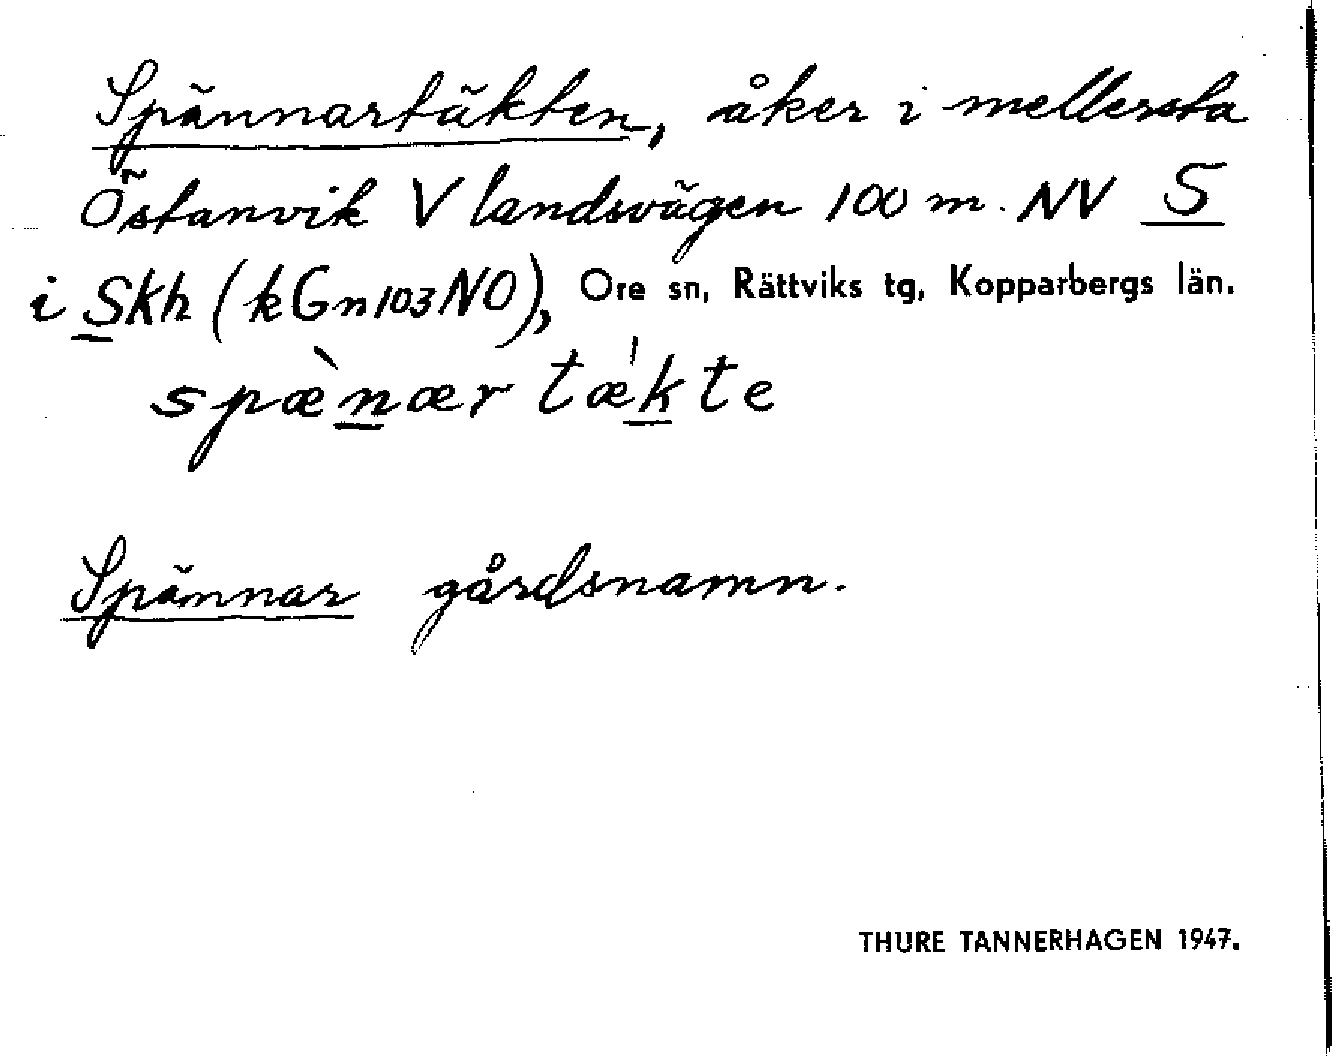 Spännartäkten, åker i mellersta
Östanvik V landsvägen 100 m. NV S
i Skh (kGn103NO), Ore sn, Rättviks tg, Kopparbergs län.
spæ̀nær tæ̍kte
Spännar gårdsnamn.
THURE TANNERHAGEN 1947.